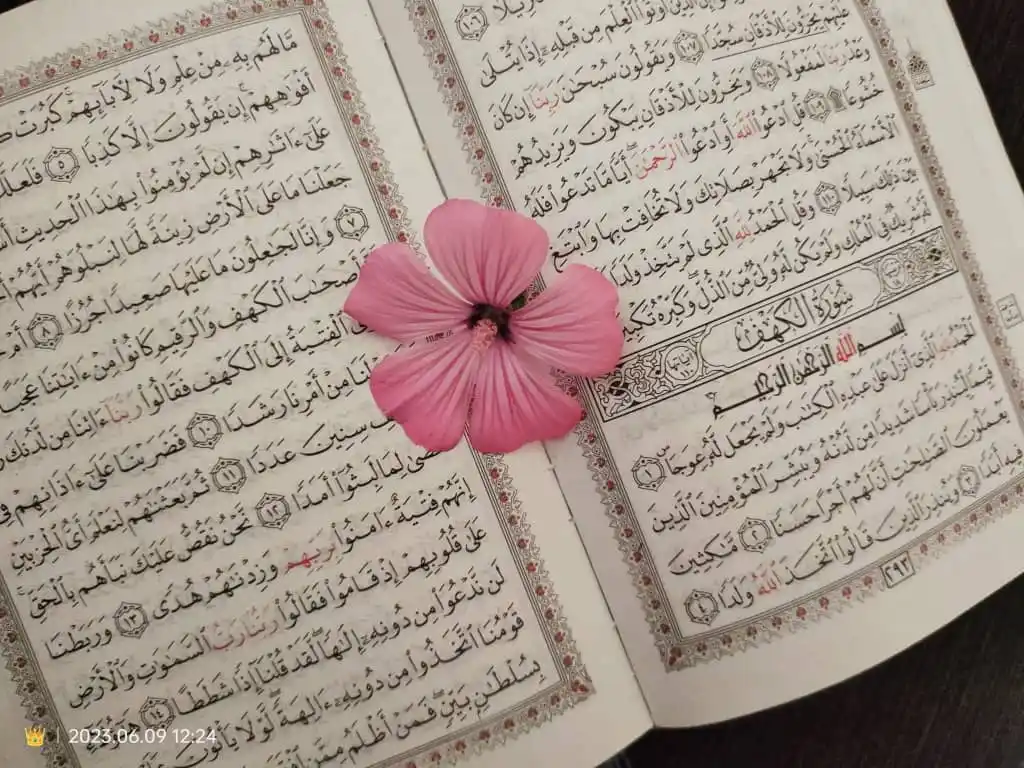 إِنَّ الَّذِينَ أُوتُوا۟ الْعِلْمَ مِن قَبْلِهِۦٓ إِذَا يُتْلَىٰ
عَلَيْهِمْ يَخِرُّونَ لِلْأَذْقَانِ سُجَّدًا ١٠٧ وَيَقُولُونَ سُبْحَٰنَ رَبِّنَآ إِن كَانَ
وَعْدُ رَبِّنَا لَمَفْعُولًا ١٠٨ وَيَخِرُّونَ لِلْأَذْقَانِ يَبْكُونَ وَيَزِيدُهُمْ
خُشُوعًا ۩ ١٠٩ قُلِ ادْعُوا۟ اللَّهَ أَوِ ادْعُوا۟ الرَّحْمَٰنَ أَيًّا مَّا تَدْعُوا۟ فَلَهُ
الْأَسْمَآءُ الْحُسْنَىٰ وَلَا تَجْهَرْ بِصَلَاتِكَ وَلَا تُخَافِتْ بِهَا وَابْتَغِ
بَيْنَ ذَٰلِكَ سَبِيلًا ١١٠ وَقُلِ الْحَمْدُ لِلَّهِ الَّذِى لَمْ يَتَّخِذْ وَلَدًا
شَرِيكٌ فِى الْمُلْكِ وَلَمْ يَكُن لَّهُۥ وَلِىٌّ مِّنَ الذُّلِّ وَكَبِّرْهُ تَكْبِيرًا
سُورَةُ الْكَهْفِ
بِسْمِ اللَّهِ الرَّحْمَٰنِ الرَّحِيمِ
الْحَمْدُ لِلَّهِ الَّذِىٓ أَنزَلَ عَلَىٰ عَبْدِهِ الْكِتَٰبَ وَلَمْ يَجْعَل لَّهُۥ عِوَجَا ١
قَيِّمًا لِّيُنذِرَ بَأْسًا شَدِيدًا مِّن لَّدُنْهُ وَيُبَشِّرَ الْمُؤْمِنِينَ الَّذِينَ
يَعْمَلُونَ الصَّٰلِحَٰتِ أَنَّ لَهُمْ أَجْرًا حَسَنًا ٢ مَّٰكِثِينَ
فِيهِ أَبَدًا ٣ وَيُنذِرَ الَّذِينَ قَالُوا۟ اتَّخَذَ اللَّهُ وَلَدًا ٤
٢٩٣
مَّا لَهُم بِهِۦ مِنْ عِلْمٍ وَلَا لِأَبَآئِهِمْ كَبُرَتْ
أَفْوَٰهِهِمْ إِن يَقُولُونَ إِلَّا كَذِبًا ٥ فَلَعَلَّكَ
عَلَىٰٓ ءَاثَٰرِهِمْ إِن لَّمْ يُؤْمِنُوا۟ بِهَٰذَا الْحَدِيثِ
جَعَلْنَا مَا عَلَى الْأَرْضِ زِينَةً لَّهَا لِنَبْلُوَهُمْ أَيُّهُمْ
٧ وَإِنَّا لَجَٰعِلُونَ مَا عَلَيْهَا صَعِيدًا جُرُزًا ٨
أَصْحَٰبَ الْكَهْفِ وَالرَّقِيمِ كَانُوا۟ مِنْ ءَايَٰتِنَا عَجَبًا
الْفِتْيَةُ إِلَى الْكَهْفِ فَقَالُوا۟ رَبَّنَآ ءَاتِنَا مِن لَّدُنكَ
لَنَا مِنْ أَمْرِنَا رَشَدًا ١٠ فَضَرَبْنَا عَلَىٰٓ ءَاذَانِهِمْ فِى
سِنِينَ عَدَدًا ١١ ثُمَّ بَعَثْنَٰهُمْ لِنَعْلَمَ أَىُّ الْحِزْبَيْنِ
أَحْصَىٰ لِمَا لَبِثُوٓا۟ أَمَدًا ١٢ نَّحْنُ نَقُصُّ عَلَيْكَ نَبَأَهُم بِالْحَقِّ
إِنَّهُمْ فِتْيَةٌ ءَامَنُوا۟ بِرَبِّهِمْ وَزِدْنَٰهُمْ هُدًى ١٣ وَرَبَطْنَا
عَلَىٰ قُلُوبِهِمْ إِذْ قَامُوا۟ فَقَالُوا۟ رَبُّنَا رَبُّ السَّمَٰوَٰتِ وَالْأَرْضِ
لَن نَّدْعُوَا۟ مِن دُونِهِۦٓ إِلَٰهًا لَّقَدْ قُلْنَآ إِذًا شَطَطًا ١٤ هَٰٓؤُلَآءِ
قَوْمُنَا اتَّخَذُوا۟ مِن دُونِهِۦٓ ءَالِهَةً لَّوْلَا يَأْتُونَ
بِسُلْطَٰنٍ بَيِّنٍ فَمَنْ أَظْلَمُ مِمَّنِ
2023.06.09 12:24